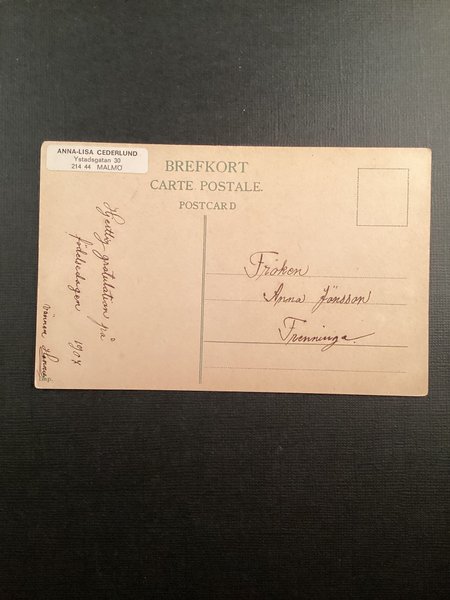 ANNA-LISA CEDERLUND
Ystadsgatan 30
214 44 MALMÖ
BREFKORT
CARTE POSTALE.
POSTCARD
Hjertlig gratulation på
födelsedagen 1907
vännen Hanna
Fröken
Anna Jönsson
Frenninga.